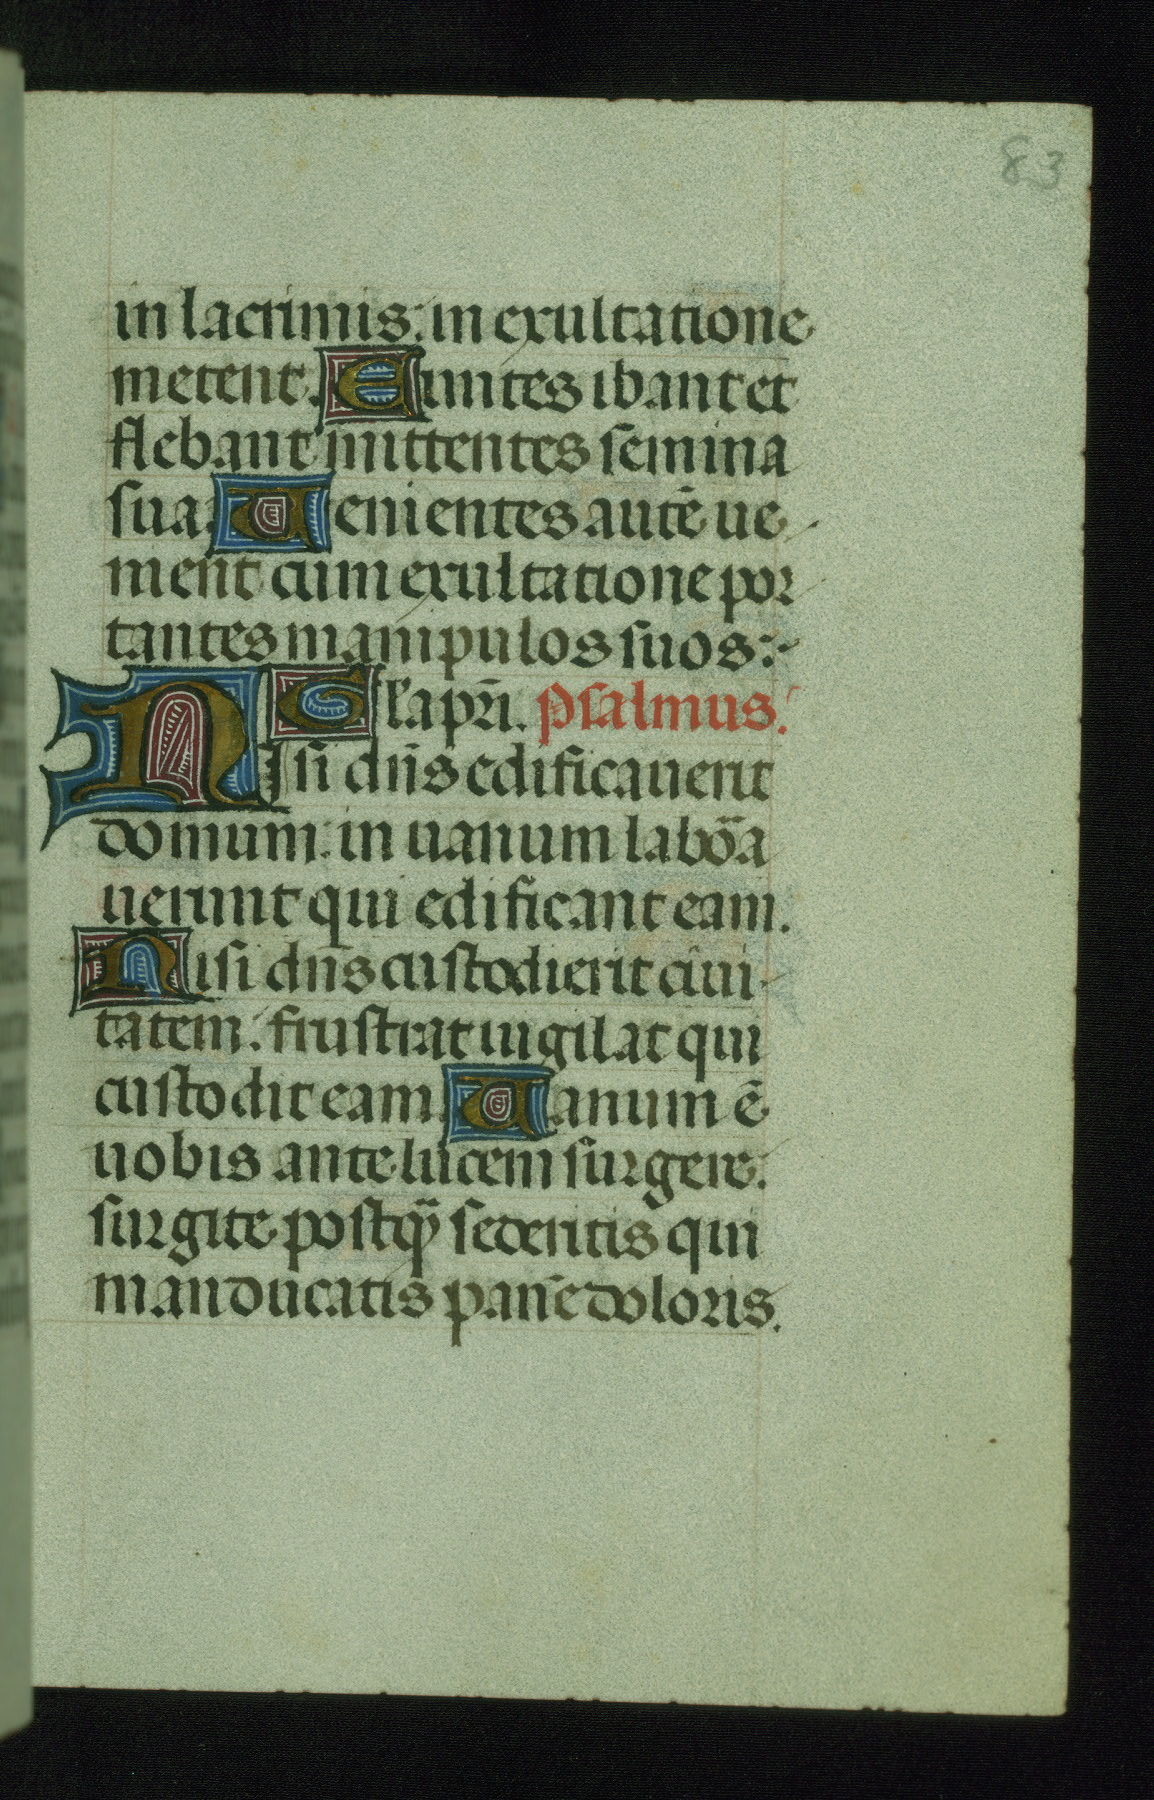 83
in lacrimis: in exultatione
metent. Euntes ibant et
flebant mittentes semina
sua. Uenientes autē ue
nient cum exultatione por
tantes manipulos suos:
Gl'a pr̄i. Psalmus.
Nisi dn̄s edificauerit
domum: in uanum labōa
uerunt qui edificant eam.
Nisi dn̄s custodierit ciui
tatem: frustra uigilat qui
custodit eam. Uanum ē
uobis ante lucem surgere:
surgite postq̄ sederitis qui
manducatis panē doloris.